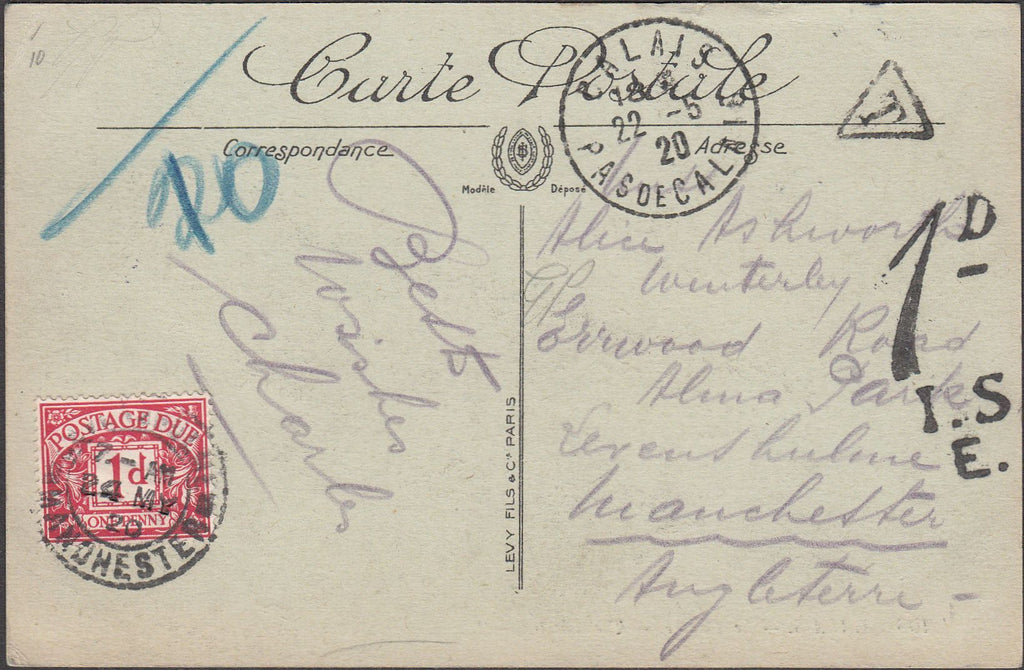 1
10
Carte Postale
Correspondance
Adresse
Modèle Déposé
CALAIS
18
22 -5
20
PAS DE CALAIS
T
20
Best
Wishes
Charles
Alice Ashworth
Winterley
Errwood Road
Alma Park
Levenshulme
Manchester
Angleterre -
1D
I.S.
E.
LEVY FILS & Cie PARIS
POSTAGE DUE
1d
ONE PENNY
7 - AM
24 MY
20
MANCHESTER